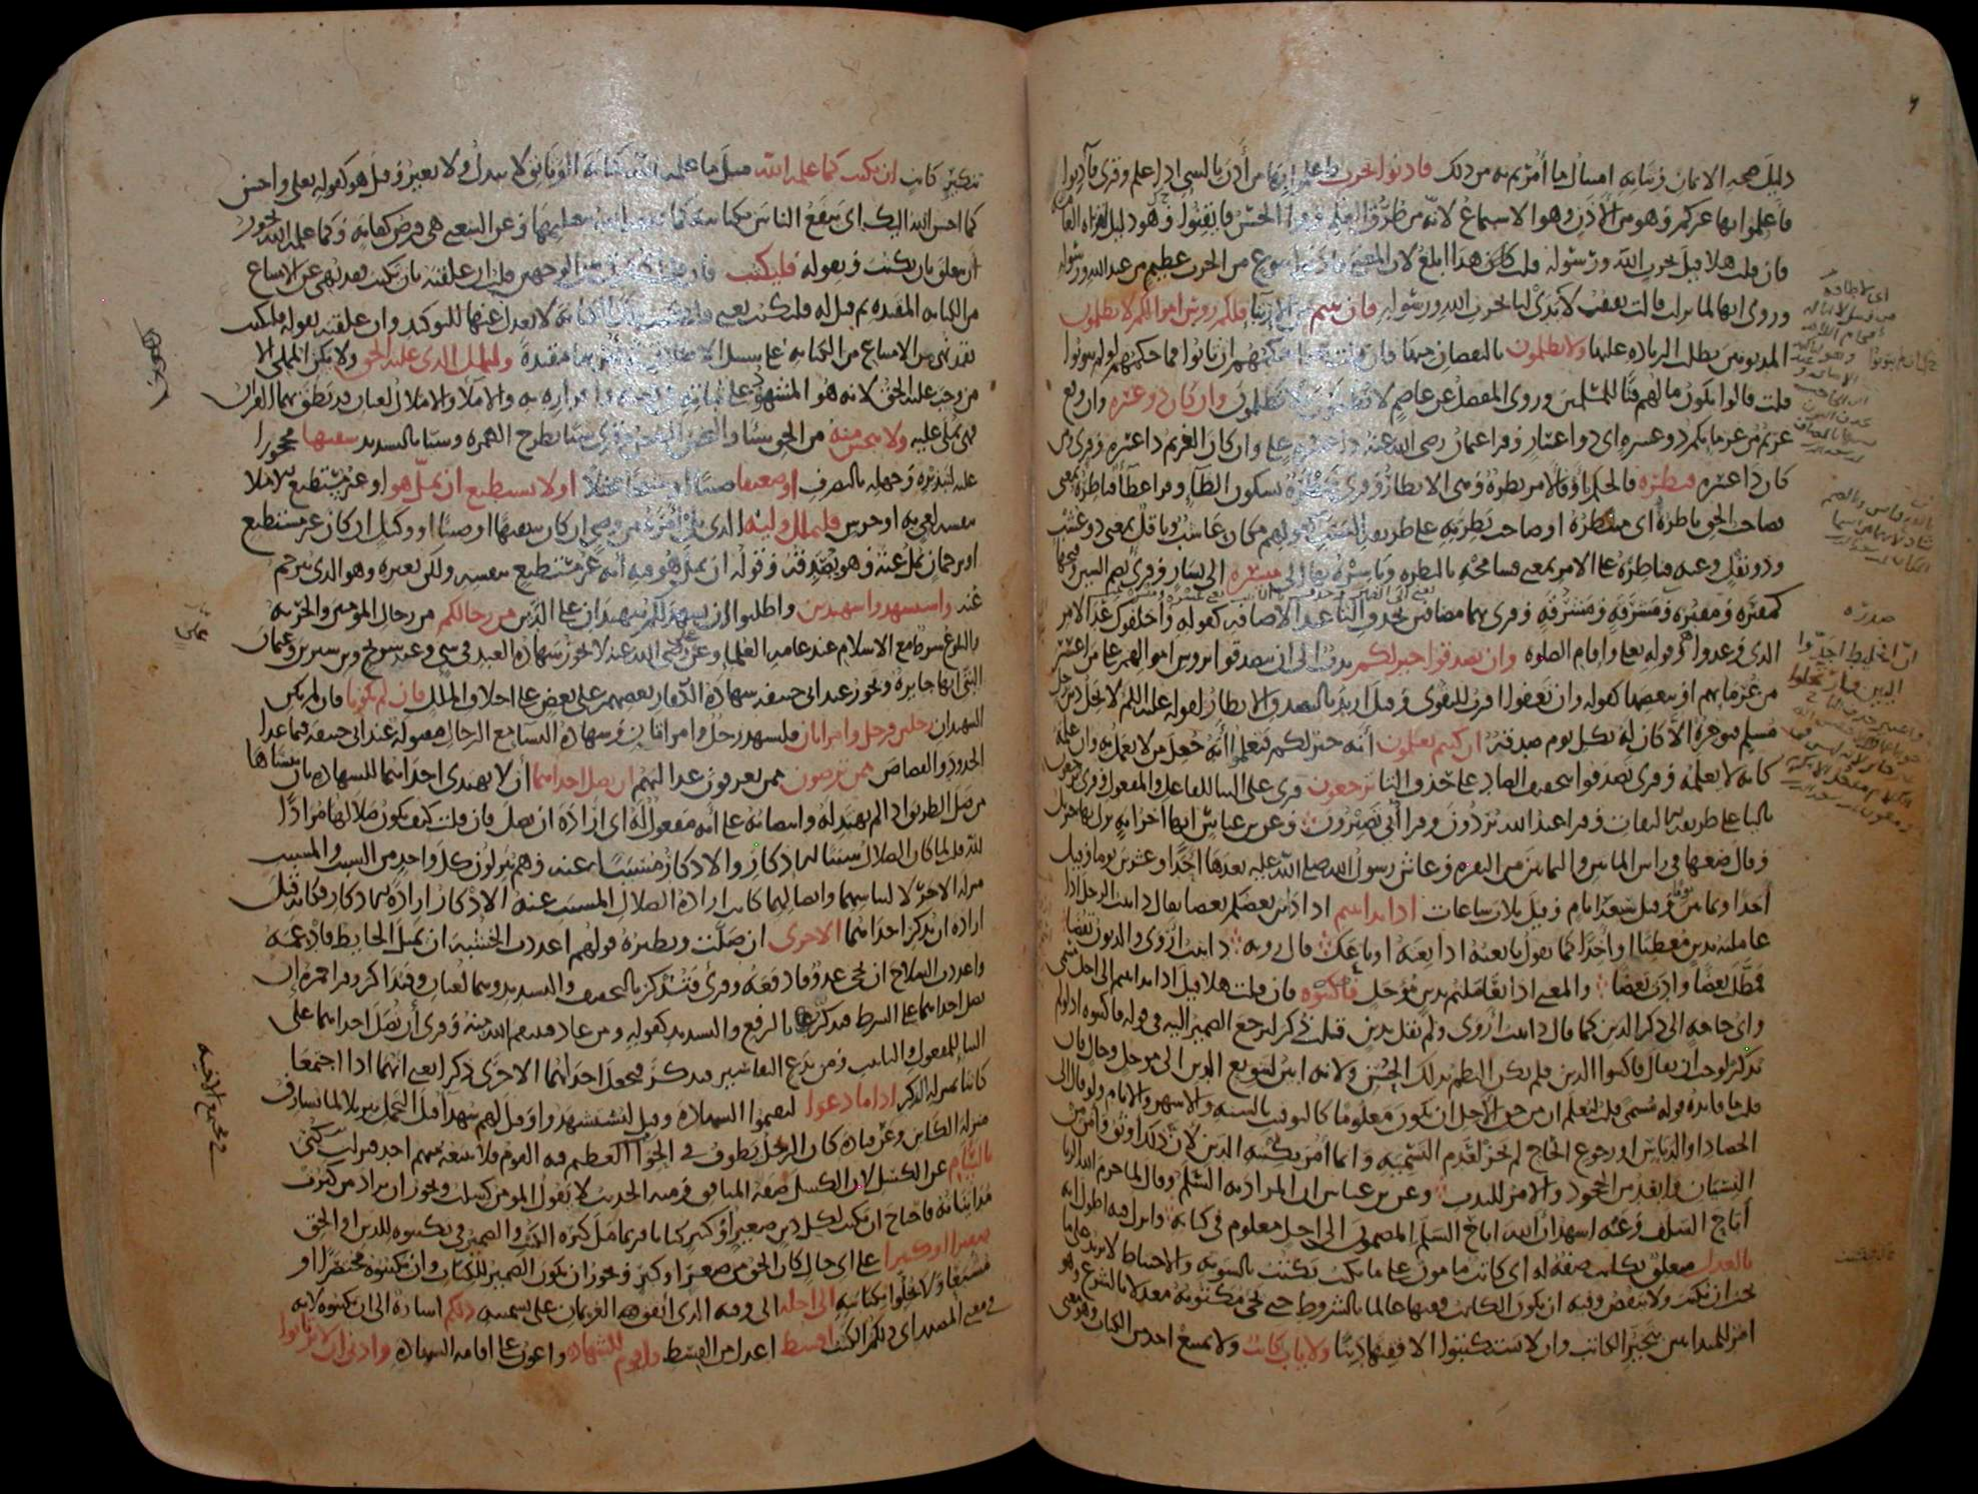 دليل صحة الايمان وثباته امتثال ما أمرتم به من ذلك فأذنوا بحرب فاعلموا بها من أذن بالشي اذا علم وقرى فآذنوا
فأعلموا بها غيركم وهو من الأذن وهو الاستماع لأنه من طرق العلم وقرأ الحسن فأيقنوا وهو دليل لقراه العامة
فان قلت هلا قيل بحرب الله ورسوله قلت كان هذا ابلغ لان المعنى فأذنوا بنوع من الحرب عظيم من عند الله ورسوله
وروى انها لما نزلت قالت ثقيف لا يدي لنا بحرب الله ورسوله فان تبتم من الارتبا فلكم روس اموالكم لا تظلمون
المديونين بطلب الزياده عليها ولا تظلمون بالنقصان منها فان قلت هذا حكمهم ان تابوا فما حكمهم لو لم يتوبوا
قلت قالوا يكون مالهم فيًا للمسلمين وروى المفضل عن عاصم لا تظلمون ولا تظلمون وان كان ذو عسره وان وقع
غريم من غرمايكم ذو عسره اى ذو اعسار وقرا عثمان رضى الله عنه ذا عسره على وان كان الغريم ذا عسره وقرى ومن
كان ذا عسره فنظره فالحكم او فالامر نظرة وهى الانظار وقرى فنظرة بسكون الظا وقرا عطا فناظره بمعنى
فصاحب الحق ناظره أى منتظره او صاحب نظرته على طريقه النسب كقولهم مكان عاشب وباقل بمعنى ذو عشب
وذو بقل وعنه فناظره على الامر بمعنى فسامحه بالنظره وياسره بها الى ميسره الى يسار وقرى بضم السين
كمقبره ومقبره ومشرقه ومشرقه وقرى بهما مضافين بحذف التا عند الاضافه كقوله وأخلفوك عد الامر
الذى وعدوا وقوله تعلى واقام الصلوه وان تصدقوا خير لكم ندب الى ان يتصدقوا بروس اموالهم على من اعسر
من غرمايهم او ببعضها كقوله وان تعفوا اقرب للتقوى وقيل اريد بالتصدق الانظار لقوله عليه السلم لا يحل دين رجل
مسلم فيؤخره الا كان له بكل يوم صدقة ان كنتم تعلمون أنه خير لكم فتعملوا به جعل من لا يعمل به وان علمه
كانه لا يعلمه وقرى تصدقوا بتخفيف الصاد على حذف التا ترجعون قرى على البنا للفاعل والمفعول وقرى يرجعون
باليا على طريقه الالتفات وقرا عبد الله تردون وقرا أبي تصيرون وعن بن عباس انها آخر آيه نزل بها جبريل
وقال ضعها فى راس المايتين والثمانين من البقره وعاش رسول الله صلى الله عليه بعدها احدًا وعشرين يوما وقيل
أحدا وثمانين وقيل سبعة ايام وقيل ثلاث ساعات اذا تداينتم اذا داين بعضكم بعضا يقال داينت الرجل اذا
عاملته بدين معطيًا او آخذا كما تقول بايعته اذا بعته او باعك قال رؤبه داينت أروى والديون تقضا
فمطلت بعضًا وادت بعضًا والمعنى اذا تعاملتم بدين مؤجل فاكتبوه فان قلت هلا قيل اذا تداينتم الى اجل مسمى
واى حاجه الى ذكر الدين كما قال داينت أروى ولم يقل بدين قلت ذكر ليرجع الضمير اليه فى قوله فاكتبوه اذ لو لم
يذكر لوجب ان يقال فاكتبوا الدين فلم يكن النظم بذلك الحسن ولانه ابين لتنويع الدين الى موجل وحال فان
قلت ما فايده قوله مسمى قلت ليعلم ان من حق الأجل ان يكون معلومًا كالتوقيت بالسنه والاشهر والايام ولو قال الى
الحصاد او الدياس او رجوع الحاج لم يجز لعدم التسميه وانما أمر بكتبه الدين لان ذلك اوثق وآمن من
النسيان وابعد من الجحود والامر للندب وعن بن عباس ان المراد به السلم وقال لما حرم الله الربا
أباح السلف وعنه اشهد أن الله اباح السلم المضمون الى اجل معلوم فى كتابه وانزل فيه اطول آيه
بالعدل متعلق بكاتب صفة له اى كاتب مامون على ما يكتب يكتب بالسويه والاحتياط لا يزيد على ما
يجب ان يكتب ولا ينقص وفيه ان يكون الكاتب فقيها عالما بالشروط حتى يجى مكتوبه معدلا بالشرع وهو
امر للمتداينين بتخير الكاتب وان لا يستكتبوا الا فقيها دينًا ولا ياب كاتب ولا يمتنع احد من الكتاب وهو معنى
تنكير كاتب ان يكتب كما علمه الله مثل ما علمه الله كتابة الوثايق لا يبدل ولا يغير وقيل هو كقوله تعلى واحسن
كما احسن الله اليك اى ينفع الناس بكتابته كما نفعه الله بتعليمها وعن الشعبى هى فرض كفايه وكما علمه الله يجوز
ان يتعلق بان يكتب وبقوله فليكتب فان قلت اى فرق بين الوجهين قلت ان علقته بان يكتب فقد نهى عن الامتناع
من الكتابه المقيده ثم قيل له فليكتب يعنى فليكتب تلك الكتابه لا يعدل عنها للتوكيد وان علقته بقوله فليكتب
فقد نهى عن الامتناع من الكتابه على سبيل الاطلاق ثم امر بها مقيدة وليملل الذى عليه الحق ولا يكن المملى الا
من وجب عليه الحق لانه هو المشهود على ثباته فى ذمته واقراره به والاملا والاملال لغتان قد نطق بهما القرآن
فهى تملى عليه ولا يبخس منه من الحق شيًا والبخس النقص وقرى شيا بطرح الهمزه وشيًا بالتشديد سفيها محجورا
عليه لتبذيره وجهله بالتصرف او ضعيفا صبيًا او شيخا مختلًا او لا يستطيع ان يمل هو او غير مستطيع للاملا
بنفسه لعى به او خرس فليملل وليه الذى يلى امره من وصى ان كان سفيهًا او صبيًا او وكيل ان كان غير مستطيع
او ترجمان يمل عنه وهو يصدقه وقوله ان يمل هو فيه أنه غير مستطيع بنفسه ولكن بغيره وهو الذى يترجم
عنه واستشهدوا شهيدين واطلبوا ان يشهد لكم شهيدان على الدين من رجالكم من رجال المؤمنين والحريه
والبلوغ شرط مع الاسلام عند عامه العلما وعن على رضى الله عنه لا تجوز شهاده العبد فى شى وعند شريح وبن سيرين وعثمان
البتى انها جايزه ويجوز عند ابى حنيفه شهادة الكفار بعضهم على بعض على اختلاف الملل فان لم يكونا فان لم يكن
الشهيدان رجلين فرجل وامراتان فليشهد رجل وامراتان وشهاده النسا مع الرجال مقبوله عند ابى حنيفه فيما عدا
الحدود والقصاص ممن ترضون ممن تعرفون عدالتهم ان تضل احداهما أن لا تهتدى احداهما للشهاده بان تنساها
من ضل الطريق اذا لم يهتد له وانتصابه على أنه مفعول له اى ارادة ان تضل فان قلت كيف يكون ضلالها مرادًا
لله قلت لما كان الضلال سببًا للاذكار والاذكار مسببًا عنه وهم ينزلون كل واحد من السبب والمسبب
منزله الاخر لالتباسهما واتصالهما كانت ارادة الضلال المسبب عنه الاذكار ارادة للاذكار فكانه قيل
اراده ان تذكر احداهما الاخرى ان ضلت ونظيره قولهم اعددت الخشبه ان يميل الحايط فادعمه
واعددت السلاح ان يجى عدو فادفعه وقرى فتذكر بالتخفيف والتشديد وهما لغتان وفتذاكر وقرا حمزه ان
تضل احداهما على الشرط فتذكر بالرفع والتشديد كقوله ومن عاد فينتقم الله منه وقرى أن تضل احداهما على
البنا للمفعول والتانيث ومن بدع التفاسير فتذكر فتجعل احداهما الاخرى ذكرا يعنى انهما اذا اجتمعا
كانتا بمنزله الذكر اذا ما دعوا ليقيموا الشهاده وقيل ليستشهدوا وقيل لهم شهدا قبل التحمل تنزيلا لما يشارف
منزله الكاين وعن قتاده كان الرجل يطوف فى الحوا العظيم فيه القوم فلا يتبعه منهم احد فنزلت كنى
بالسأم عن الكسل لان الكسل صفة المنافق ومنه الحديث لا يقول المومن كسلت ويجوز ان يراد من كثرت
مدايناته فاحتاج ان يكتب لكل دين صغير او كبير كتابا فربما مل كثره الكتب والضمير فى تكتبوه للدين او الحق
صغيرا او كبيرا على اى حال كان الحق من صغر او كبر ويجوز ان يكون الضمير للكتاب وان يكتبوه مختصرًا او
مشبعا ولا يخلوا بكتابته الى اجله الى وقته الذى اتفق الغريمان على تسميته ذلكم اشارة الى ان تكتبوه لانه
فى معنى المصدر اى ذلكم الكتب اقسط اعدل من القسط واقوم للشهاده واعون على اقامه الشهاده وادنى ان لا ترتابوا